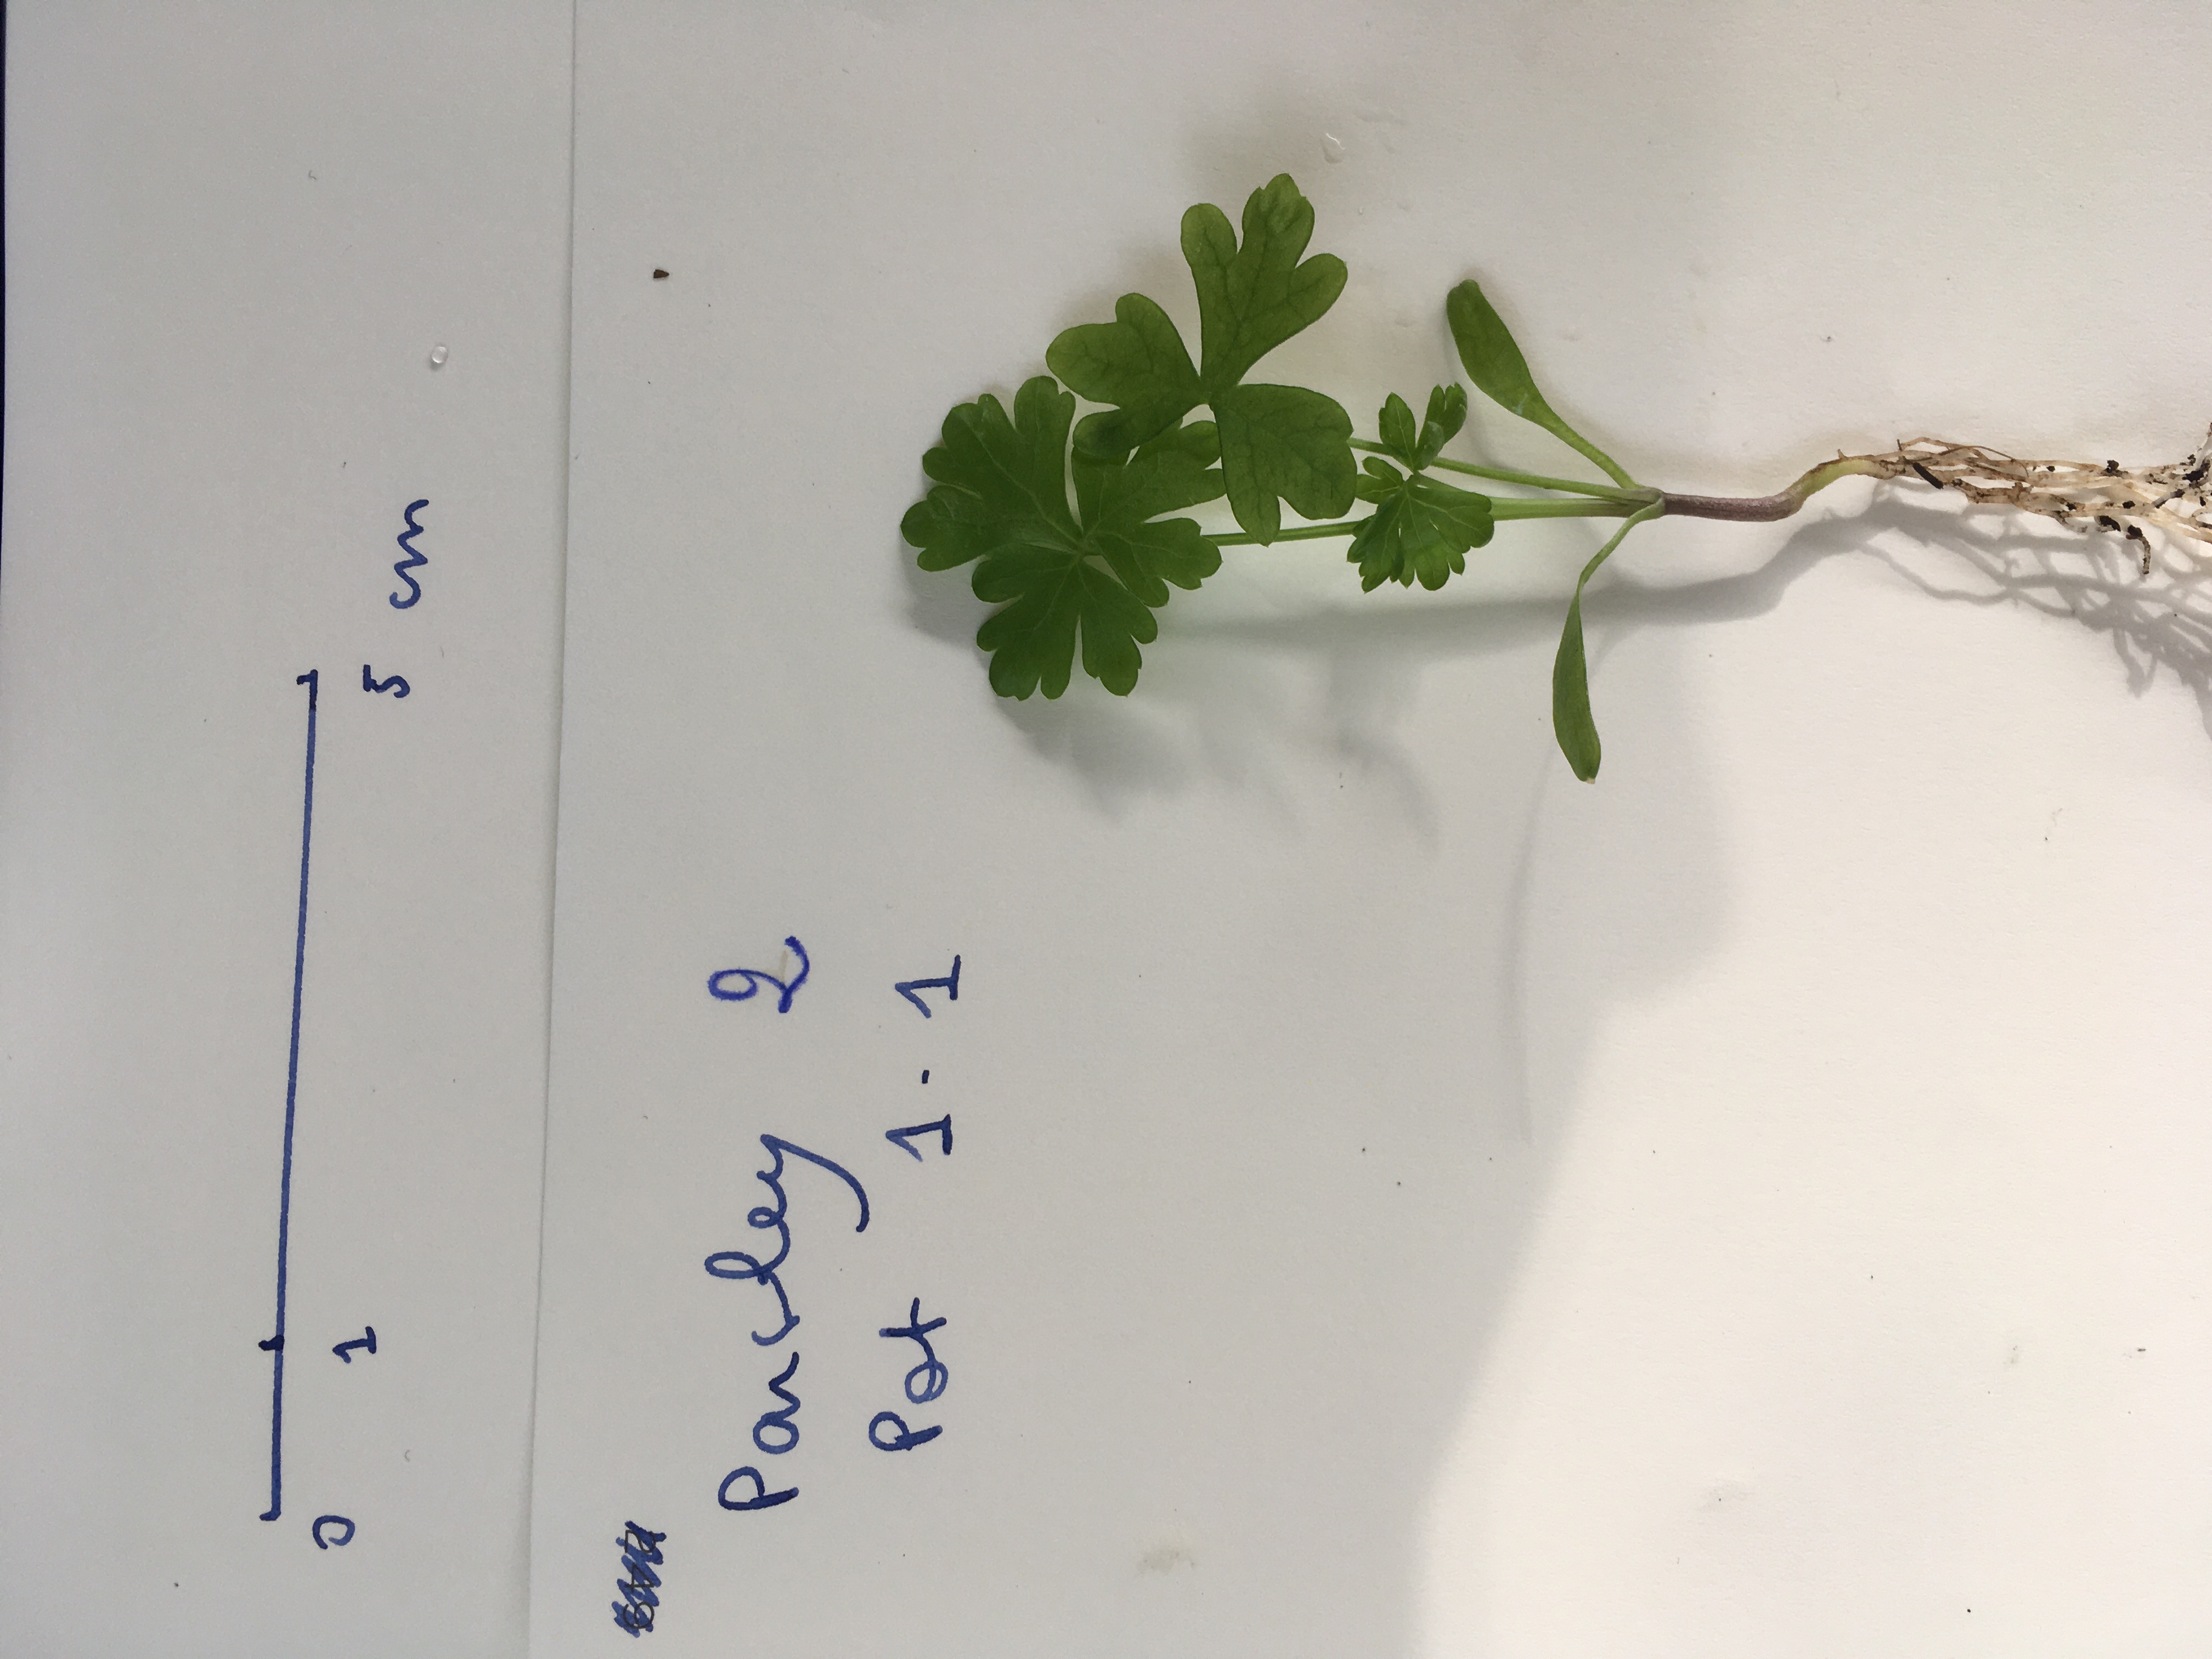 0 1 5 cm
Parsley 2
Pot 1.1